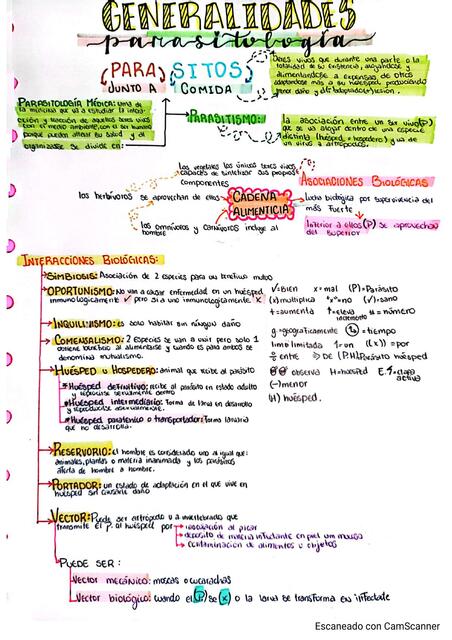 GENERALIDADES
parasitología
PARA SITOS
JUNTO A COMIDA
Seres vivos que durante una parte o la
totalidad de su existencia, alojándose y
alimentándose a expensas de otros
PARASITOLOGÍA MÉDICA: rama de
la medicina que va a estudiar la
y reacción de aquellos seres vivos
con el medio ambiente, con el ser humano
porque pueden afectar su salud y el
organizarse se divide en:
PARASITISMO:
la asociación entre un ser vivo (P)
que se va alojar dentro de una especie
distinta (huésped = hospedero) y va de
un vivo a
los vegetales los únicos seres vivos
capaces de sintetizar sus propios
componentes
los herbívoros se aprovechan de ellos
CADENA
ALIMENTICIA
los omnívoros y carnívoros incluye al
hombre
ASOCIACIONES BIOLÓGICAS
Lucha biológica por supervivencia del
más fuerte
Inferior a ellos (P) se aprovechan
del superior
INTERACCIONES BIOLÓGICAS:
SIMBIOSIS: Asociación de 2 especies para un beneficio mutuo
OPORTUNISMO: No van a causar enfermedad en un huésped
inmunologicamente ✓ pero si a uno inmunologicamente X
INQUILINISMO: es solo habitar sin ningún daño
COMENSALISMO: 2 Especies se van a unir pero solo 1
obtiene beneficio al alimentarse y cuando es para ambos se
denomina mutualismo.
HUÉSPED u HOSPEDERO: animal que recibe al parásito
*Huésped definitivo: recibe al parásito en estado adulto
y reproducirse sexualmente dentro
*Huésped intermediario: Forma de larva en desarrollo
y reproducirse asexualmente.
*Huésped paraténico o transportador: Forma larvaria
que no desarrolla.
RESERVORIO: el hombre es considerado uno al igual que:
animales, plantas o materia inanimada y los parásitos
afecta de hombre a hombre.
PORTADOR: un estado de adaptación en el que vive en
huésped sin causarle daño
VECTOR: Puede ser artrópodo o a invertebrados que
transmite el P. al huésped por
inoculación al picar
depósito de materia infectante en piel um mucosa
contaminación de alimentos u objetos
PUEDE SER:
Vector mecánico: moscas o cucarachas
Vector biológico: cuando el (P) se (x) o la larva se transforma en infectante
✓=Bien x=mal (P)=Parásito
(x) multiplica (v)=sano
t=aumenta t=eleva #=número
incremento
g=geograficamente =tiempo
limo limitada 1=un ((x))=por
÷ entre ⇒ DE (P.H) Parásito huésped
observa H=huésped E.↑=etapa
activa
(-)menor
(H) huésped.
Escaneado con CamScanner